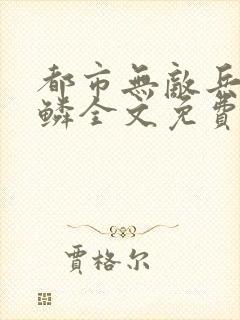 都市無敵兵
鱗全文免費
賈格尔